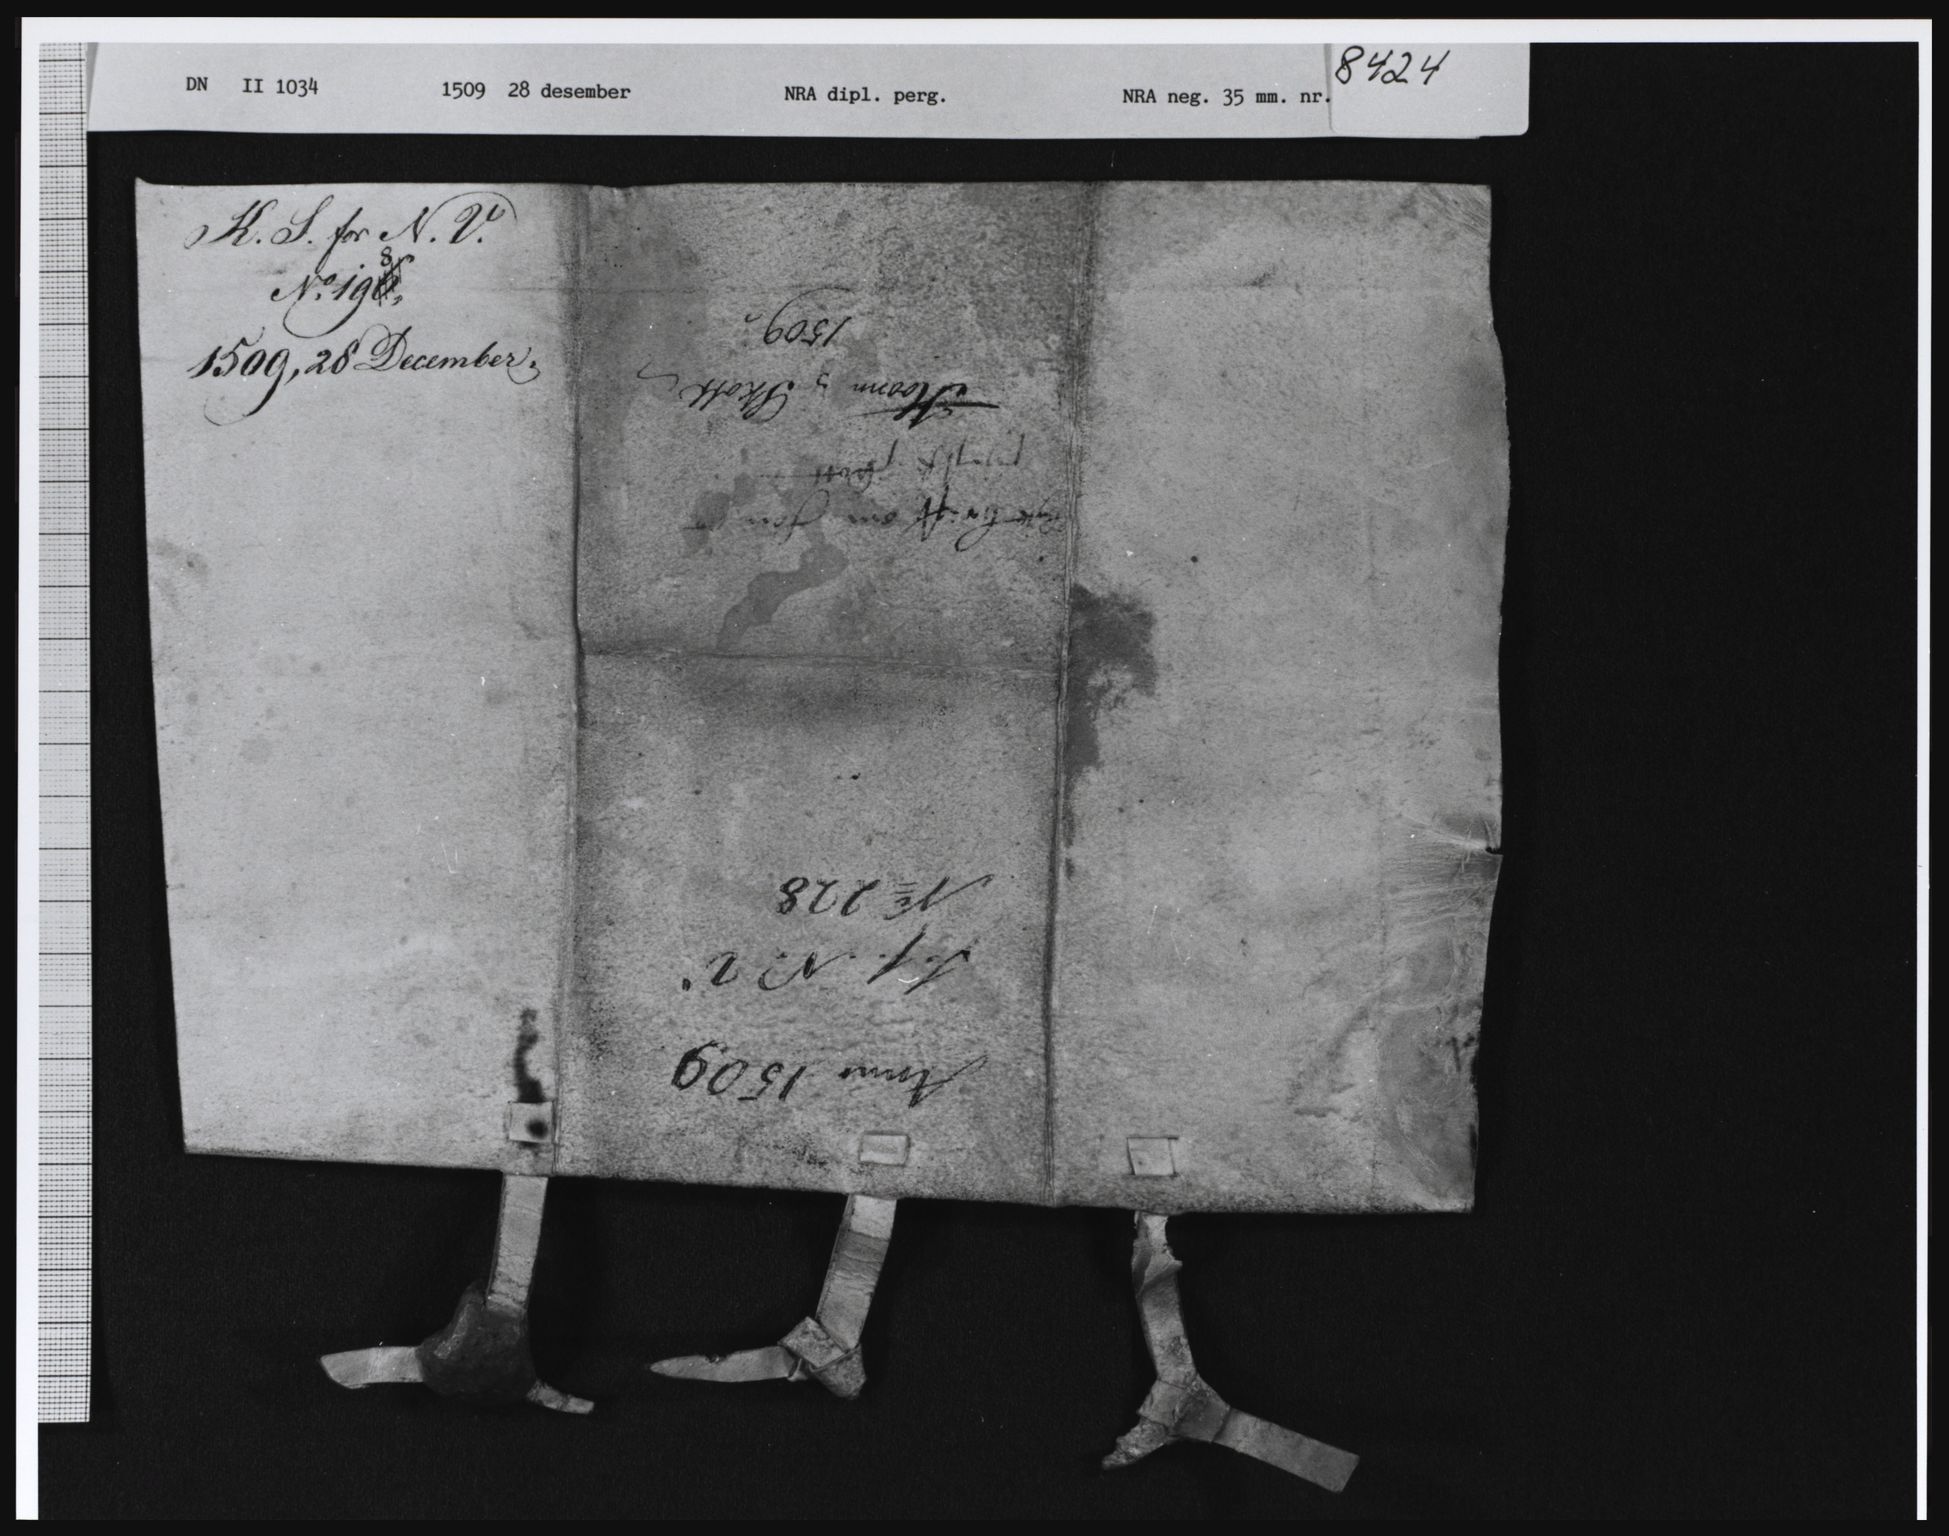 DN II 1034 1509 28 desember NRA dipl. perg. NRA neg. 35 mm. nr. 8424
K. S. for N. V.
No. 198,
1509, 28 December.
1509
Skott
om
Skott
No 228
No 2
Anno 1509